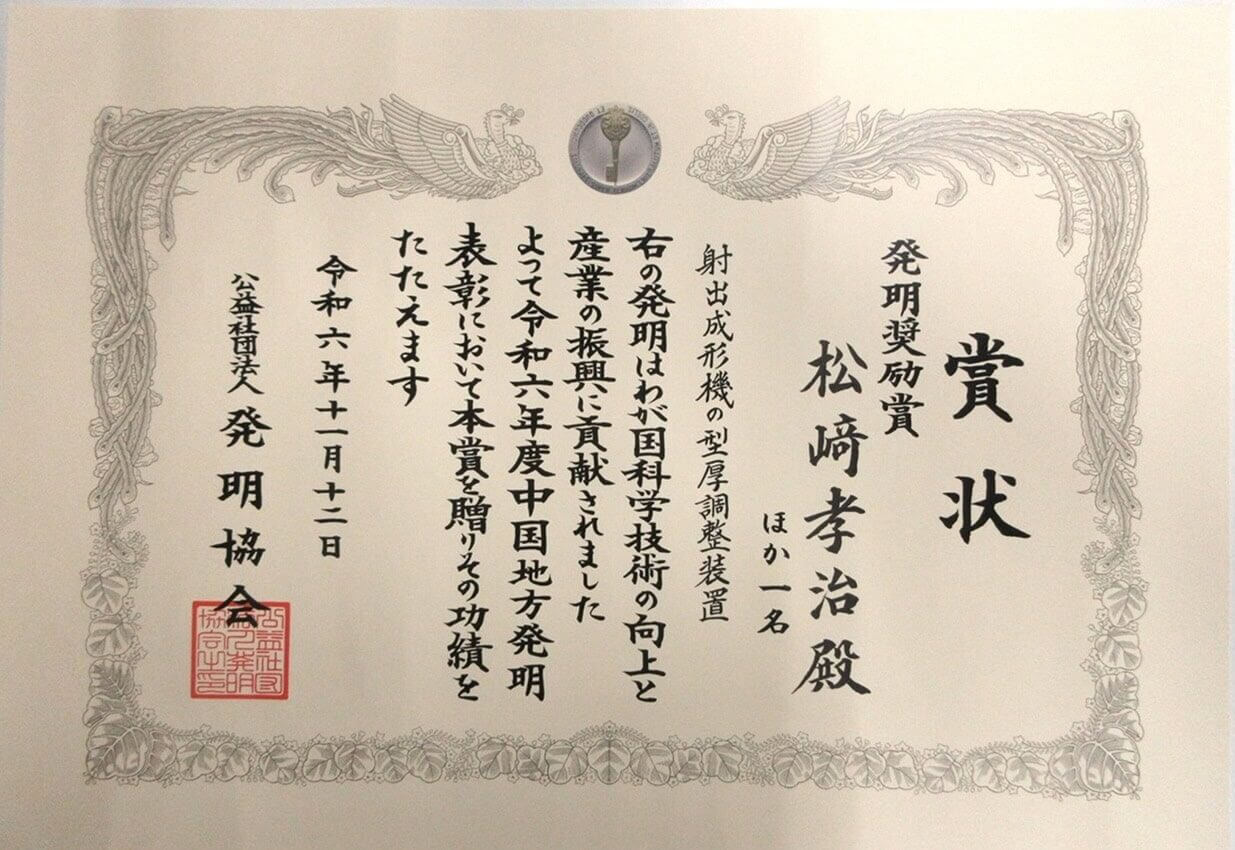 賞状
発明奨励賞
松﨑孝治殿
ほか一名
射出成形機の型厚調整装置
右の発明はわが国科学技術の向上と
産業の振興に貢献されました
よって令和六年度中国地方発明
表彰において本賞を贈りその功績を
たたえます
令和六年十一月十二日
公益社団法人 発明協会